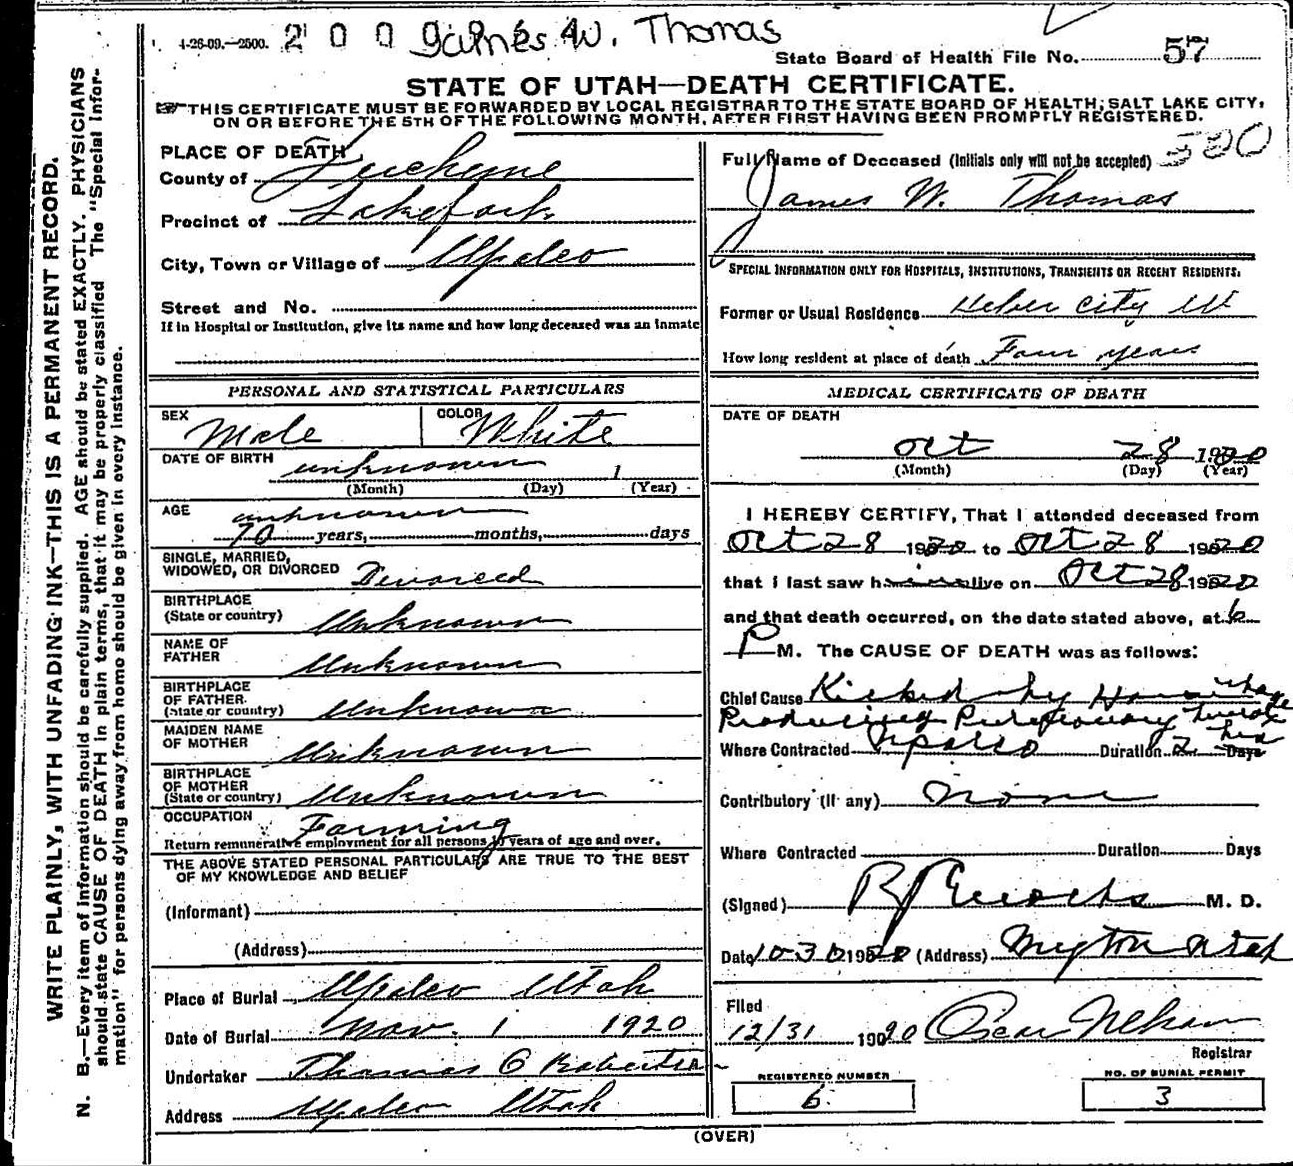 4-26-09.—2500. 200 James W. Thomas
State Board of Health File No. 57
STATE OF UTAH—DEATH CERTIFICATE.
THIS CERTIFICATE MUST BE FORWARDED BY LOCAL REGISTRAR TO THE STATE BOARD OF HEALTH, SALT LAKE CITY,
ON OR BEFORE THE 5TH OF THE FOLLOWING MONTH, AFTER FIRST HAVING BEEN PROMPTLY REGISTERED.
WRITE PLAINLY, WITH UNFADING INK—THIS IS A PERMANENT RECORD.
N. B.—Every item of information should be carefully supplied. AGE should be stated EXACTLY. PHYSICIANS
should state CAUSE OF DEATH in plain terms, that it may be properly classified The "Special Infor-
mation" for persons dying away from home should be given in every instance.
PLACE OF DEATH
County of Duchesne
Precinct of Lakefork
City, Town or Village of Upalco
Street and No.
If in Hospital or Institution, give its name and how long deceased was an inmate
PERSONAL AND STATISTICAL PARTICULARS
SEX Male COLOR White
DATE OF BIRTH unknown 1
(Month) (Day) (Year)
AGE unknown
70 years, months, days
SINGLE, MARRIED,
WIDOWED, OR DIVORCED Divorced
BIRTHPLACE
(State or country) Unknown
NAME OF
FATHER Unknown
BIRTHPLACE
OF FATHER
(State or country) Unknown
MAIDEN NAME
OF MOTHER Unknown
BIRTHPLACE
OF MOTHER
(State or country) Unknown
OCCUPATION Farming
Return remunerative employment for all persons 10 years of age and over.
THE ABOVE STATED PERSONAL PARTICULARS ARE TRUE TO THE BEST
OF MY KNOWLEDGE AND BELIEF
(Informant)
(Address)
Place of Burial Upalco Utah
Date of Burial Nov. 1 1920
Undertaker Thomas G Robertson
Address Upalco Utah
Full Name of Deceased (Initials only will not be accepted) 520
James W. Thomas
SPECIAL INFORMATION ONLY FOR HOSPITALS, INSTITUTIONS, TRANSIENTS OR RECENT RESIDENTS.
Former or Usual Residence Heber City Ut
How long resident at place of death Four years
MEDICAL CERTIFICATE OF DEATH
DATE OF DEATH
Oct 28 1920
(Month) (Day) (Year)
I HEREBY CERTIFY, That I attended deceased from
Oct 28 1920 to Oct 28 1920
that I last saw him alive on Oct 28 1920
and that death occurred, on the date stated above, at 6
P M. The CAUSE OF DEATH was as follows:
Chief Cause Kicked by Horse
Producing
Where Contracted Upalco Duration 2 hrs Days
Contributory (if any) None
Where Contracted Duration Days
(Signed) M. D.
Date 10-30 1920 (Address) Myton Utah
Filed
12/31 1920 Oscar Nelson
Registrar
REGISTERED NUMBER
6
NO. OF BURIAL PERMIT
3
(OVER)